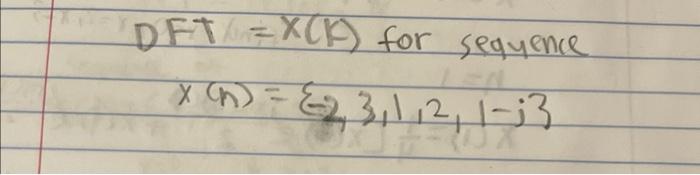 DFT = X(K) for sequence
x(n) = {-2, 3, 1, 2, 1-j}